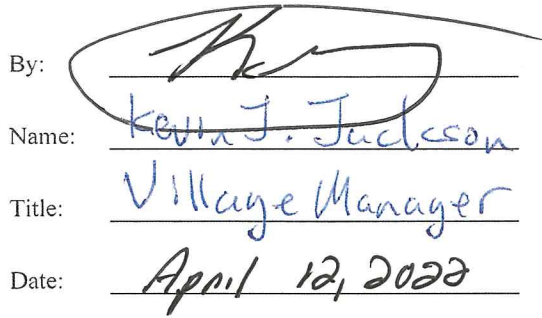 By:
Name: Kevin J. Jackson
Title: Village Manager
Date: April 12, 2022